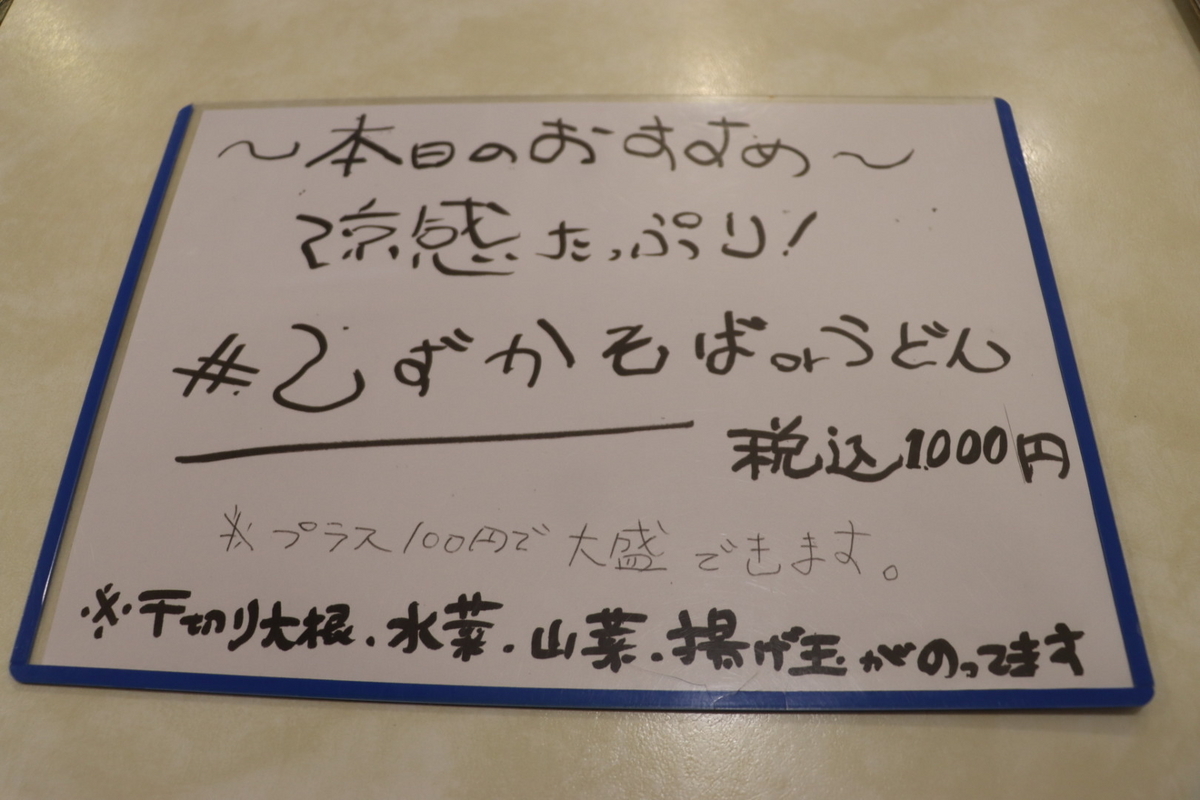 ～本日のおすすめ～
涼感たっぷり！
#しずかそばorうどん
税込1.000円
※プラス100円で大盛できます。
※千切り大根.水菜.山菜.揚げ玉がのってます